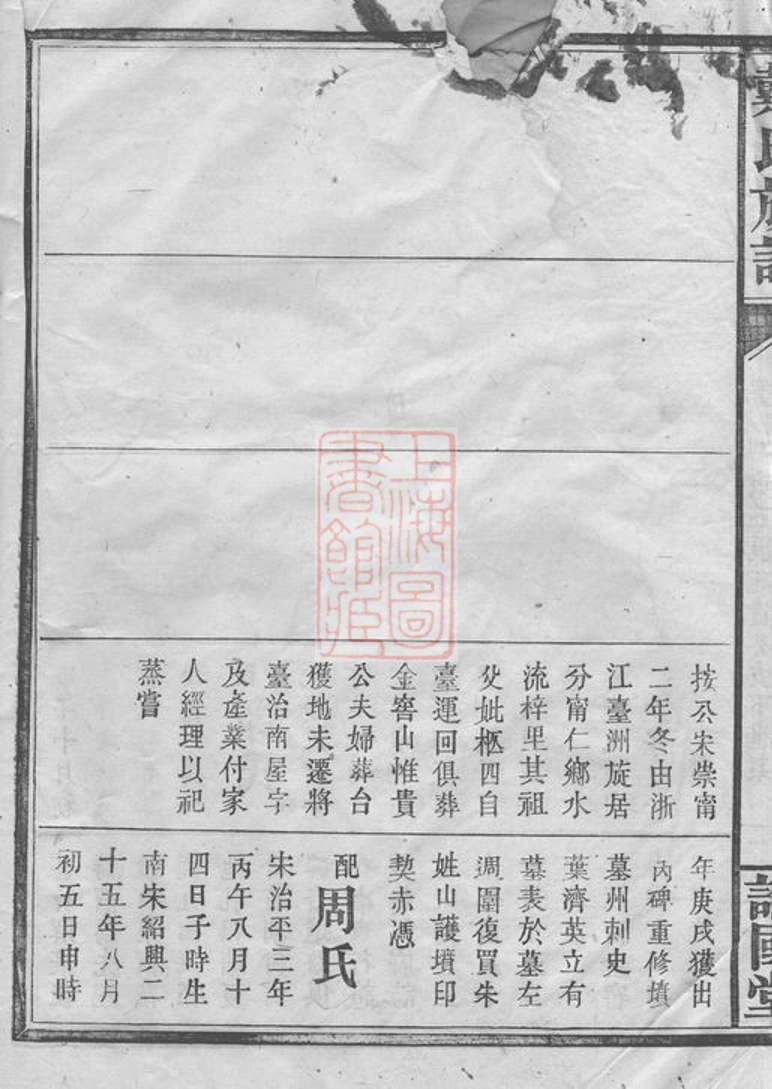 戴氏族譜
按公宋崇甯
二年冬由浙
江臺洲旋居
分甯仁鄉水
流梓里其祖
父妣柩四自
臺運回俱葬
金窖山惟貴
公夫婦葬台
獲地未遷將
臺治南屋字
及產業付家
人經理以祀
蒸嘗
年庚戌獲出
內碑重修墳
墓州刺史
葉濟英立有
墓表於墓左
週圍復買朱
姓山護墳印
契赤憑
配周氏
宋治平三年
丙午八月十
四日子時生
南宋紹興二
十五年八月
初五日申時
上海圖
書館藏